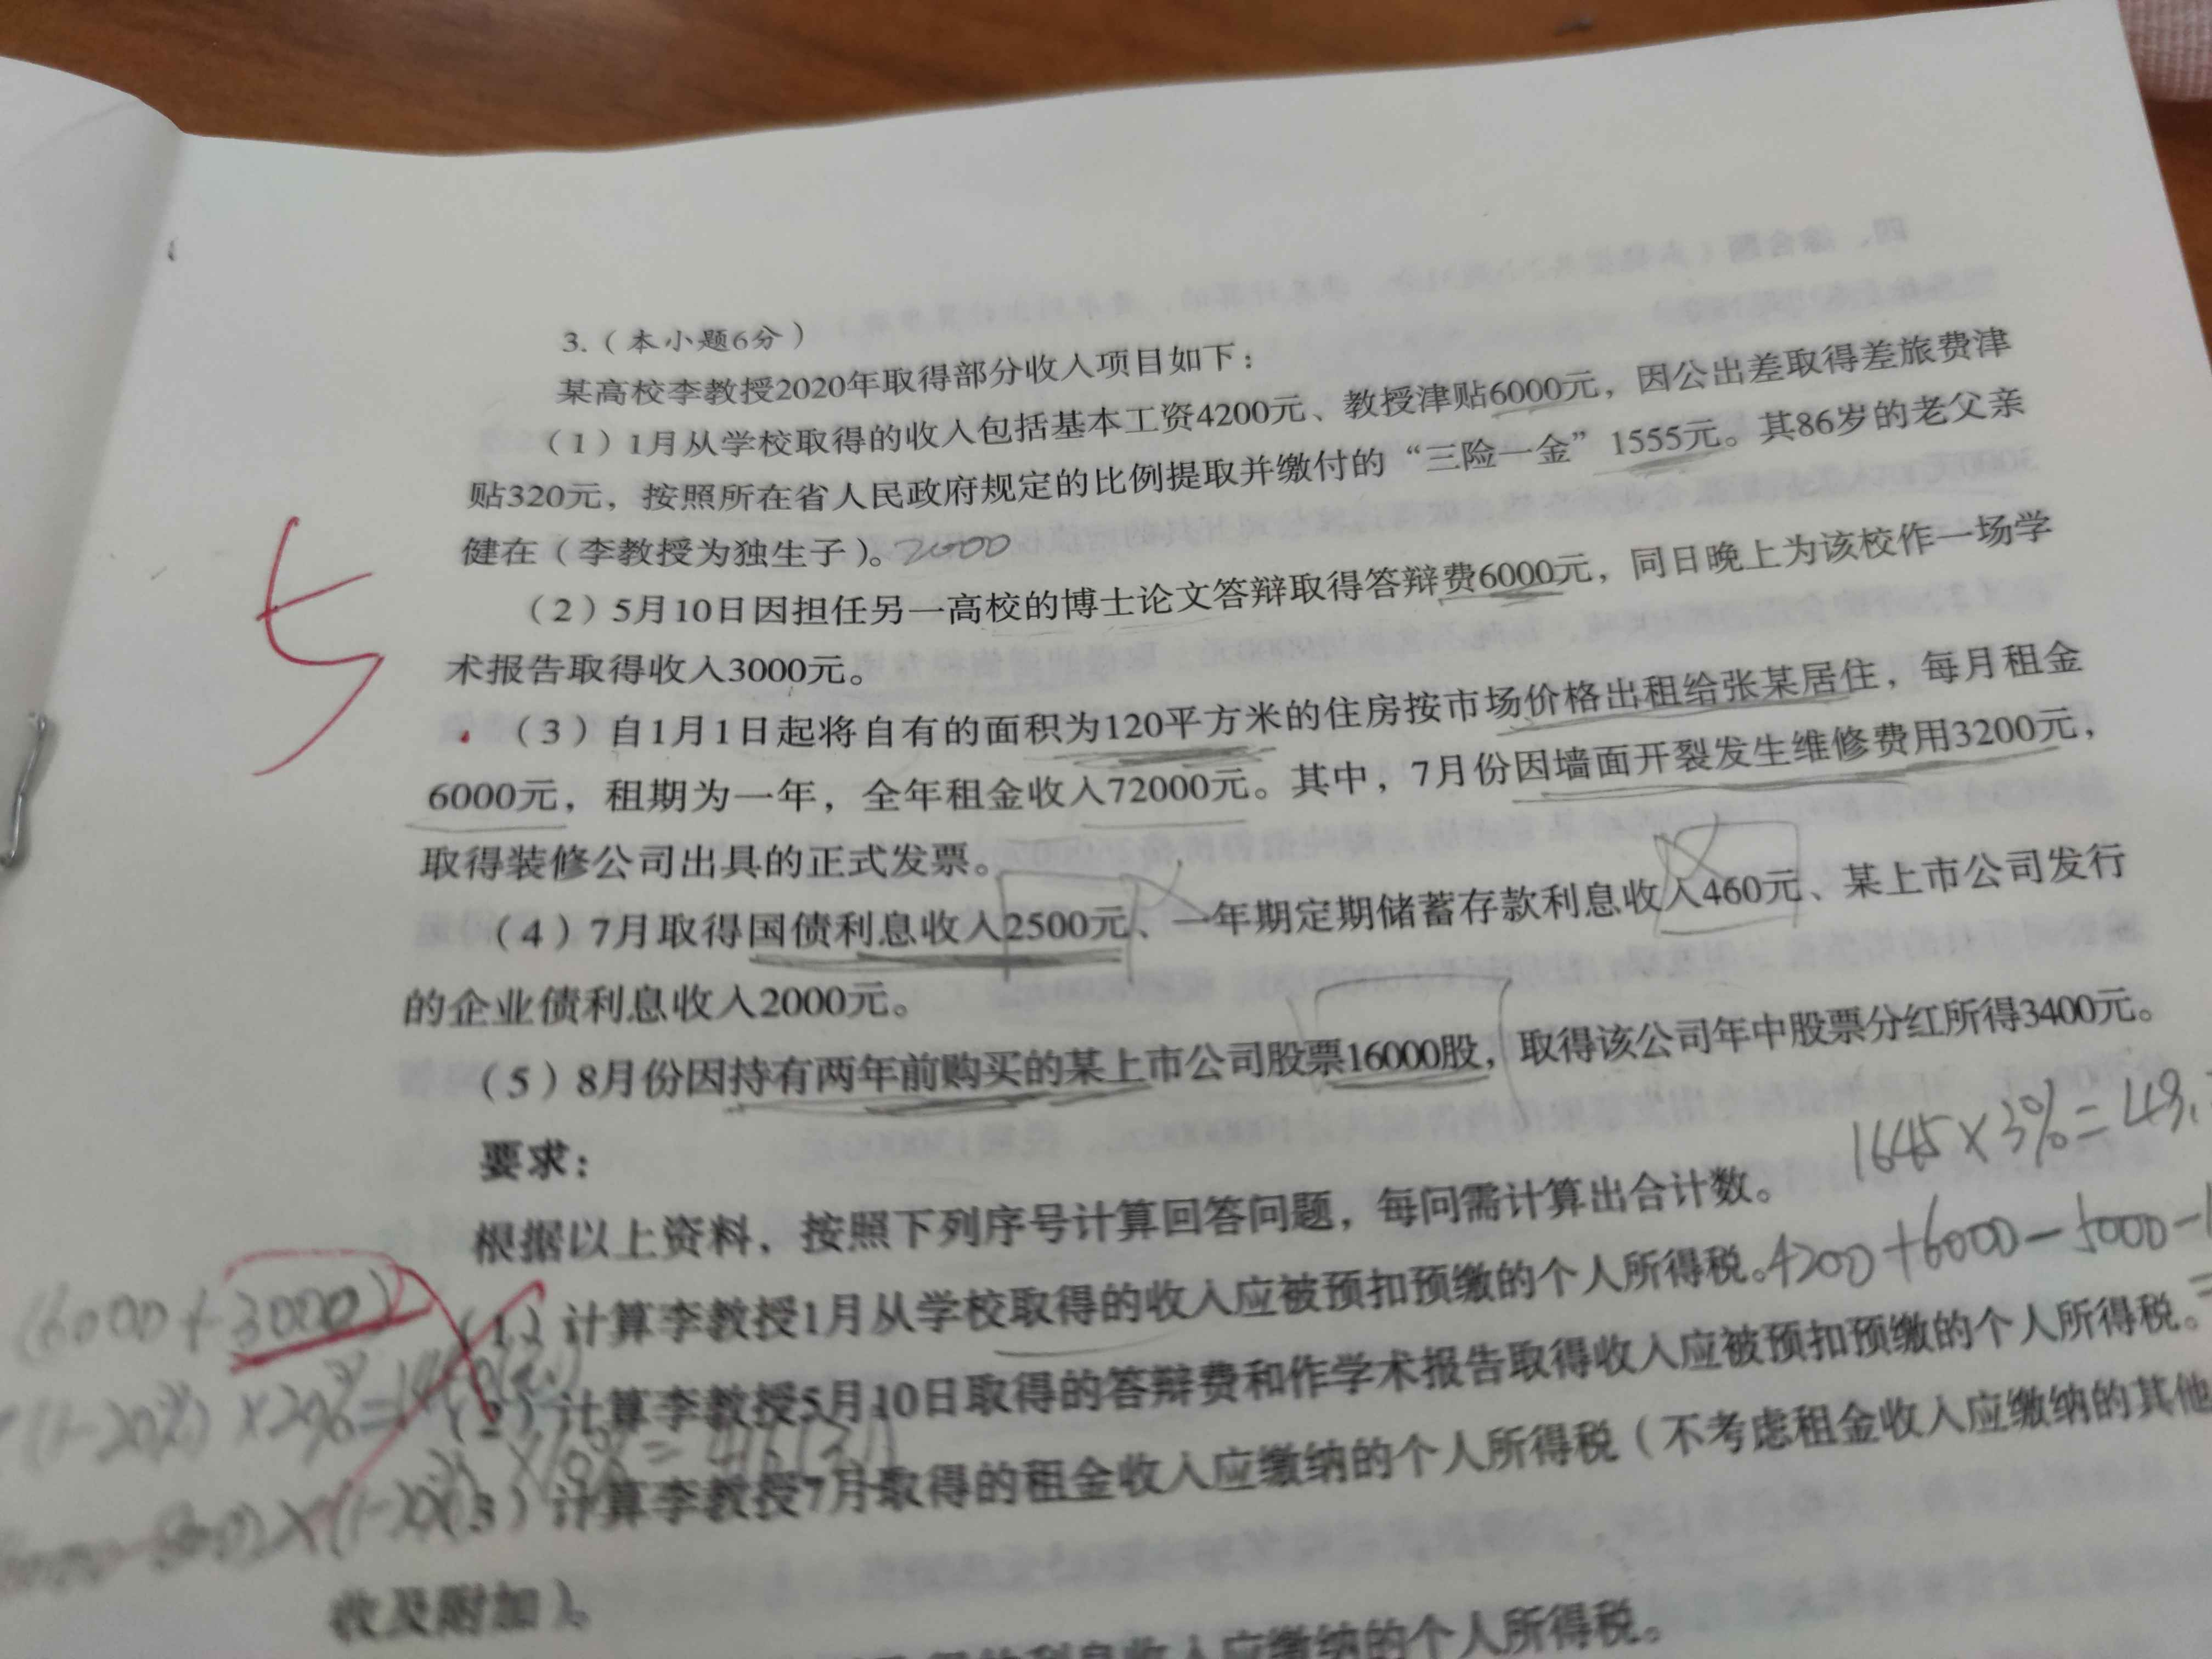 3.（本小题6分）
某高校李教授2020年取得部分收入项目如下：
（1）1月从学校取得的收入包括基本工资4200元、教授津贴6000元，因公出差取得差旅费津
贴320元，按照所在省人民政府规定的比例提取并缴付的“三险一金”1555元。其86岁的老父亲
健在（李教授为独生子）。2000
（2）5月10日因担任另一高校的博士论文答辩取得答辩费6000元，同日晚上为该校作一场学
术报告取得收入3000元。
（3）自1月1日起将自有的面积为120平方米的住房按市场价格出租给张某居住，每月租金
6000元，租期为一年，全年租金收入72000元。其中，7月份因墙面开裂发生维修费用3200元，
取得装修公司出具的正式发票。
（4）7月取得国债利息收入2500元、一年期定期储蓄存款利息收入460元、某上市公司发行
的企业债利息收入2000元。
（5）8月份因持有两年前购买的某上市公司股票16000股，取得该公司年中股票分红所得3400元。
要求：
1645×3%=49.
根据以上资料，按照下列序号计算回答问题，每问需计算出合计数。
（1）计算李教授1月从学校取得的收入应被预扣预缴的个人所得税。4200+6000-5000-1
(6000+3000)
（2）计算李教授5月10日取得的答辩费和作学术报告取得收入应被预扣预缴的个人所得税。
(1-20%)×20%=
（3）计算李教授7月取得的租金收入应缴纳的个人所得税（不考虑租金收入应缴纳的其他
×(1-20%)
收及附加）。
利息收入应缴纳的个人所得税。